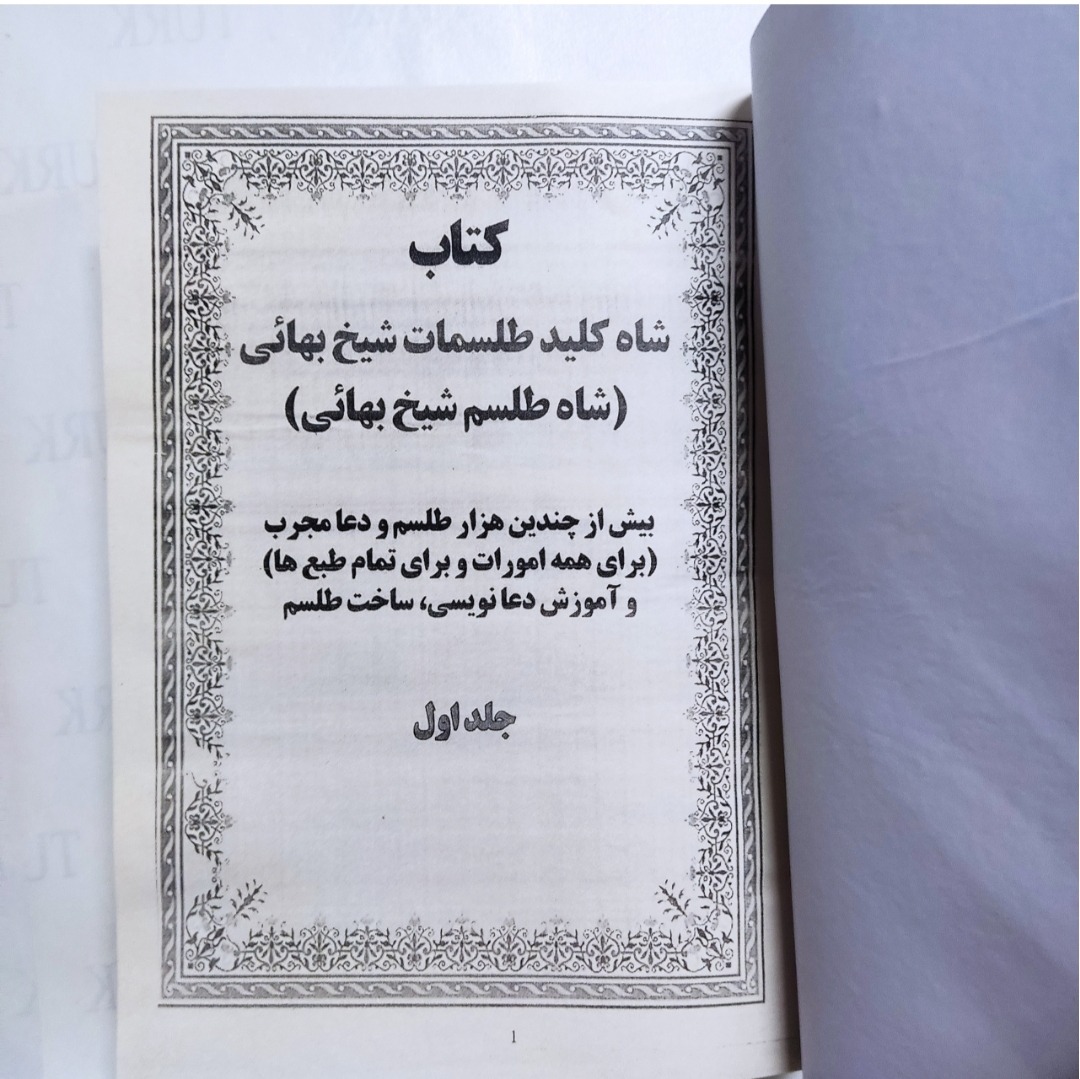 کتاب
شاه کلید طلسمات شیخ بهائی
(شاه طلسم شیخ بهائی)
بیش از چندین هزار طلسم و دعا مجرب
(برای همه امورات و برای تمام طبع ها)
و آموزش دعا نویسی، ساخت طلسم
جلد اول
1
TURK
TURK
TURK